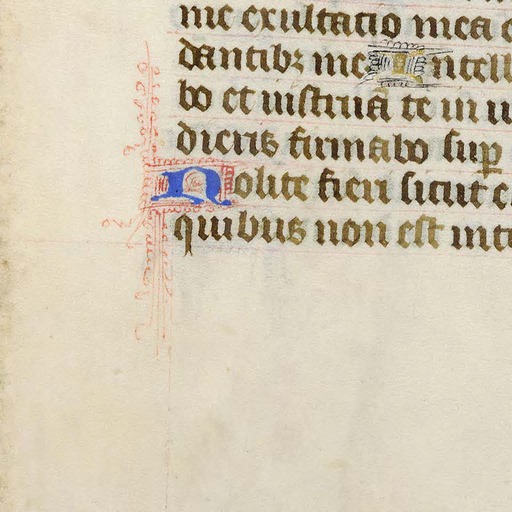 me exultatio mea e
dantibꝫ me Intell
bo et instruā te in u
dieris firmabo suꝑ
Nolite fieri sicut e
quibus non est inte